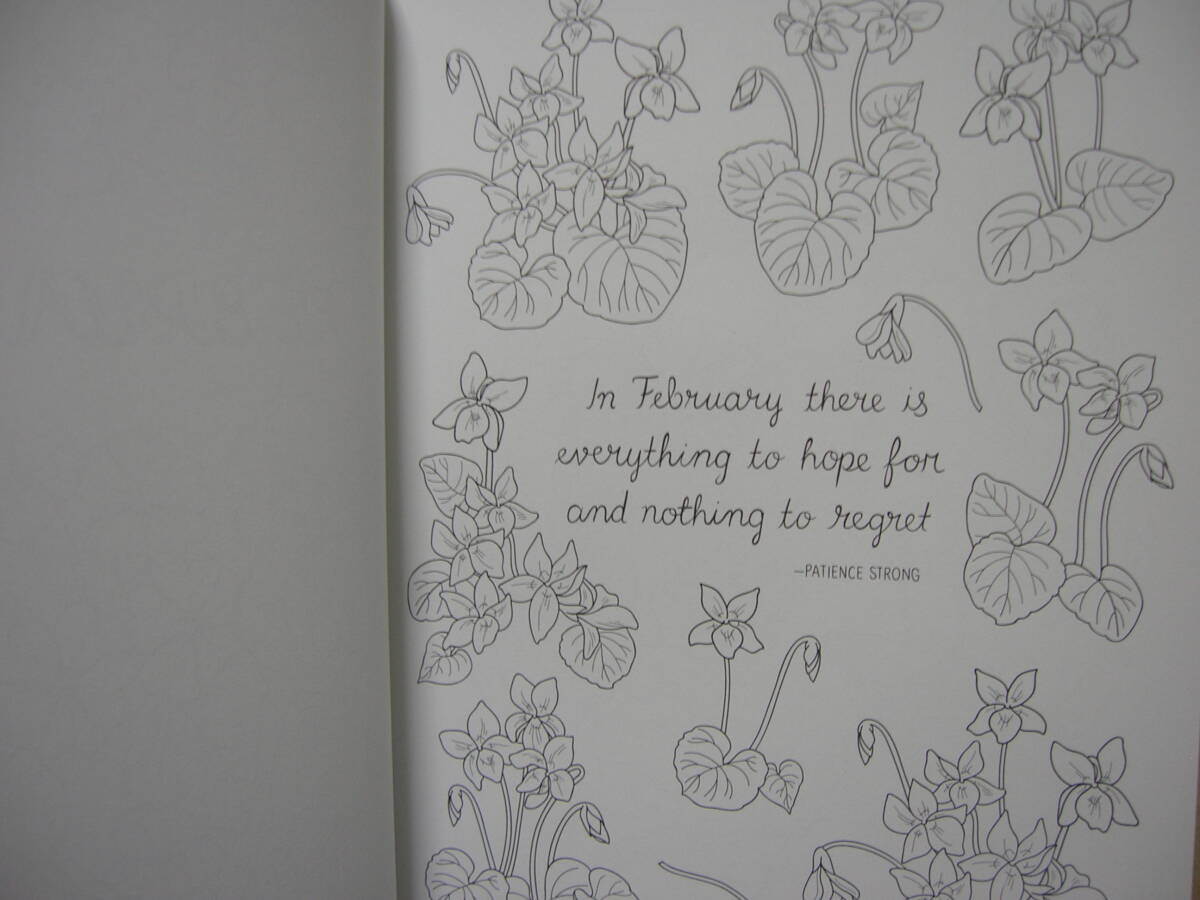 In February there is
everything to hope for
and nothing to regret
—PATIENCE STRONG